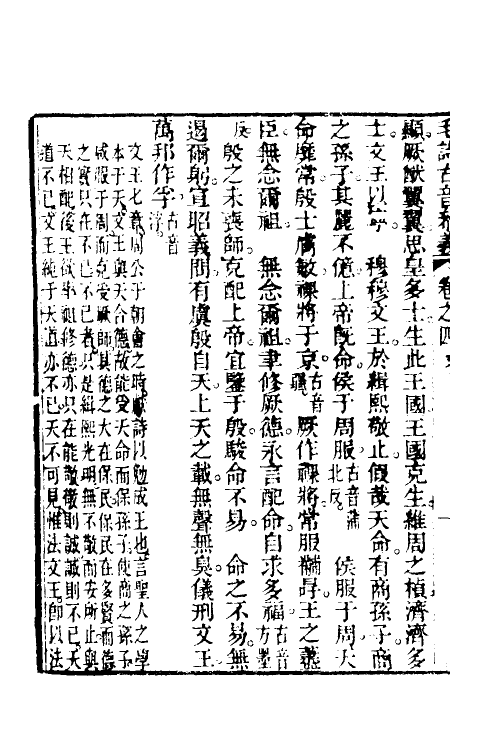 毛詩古音參義 卷之四
顯厥猷翼翼思皇多士生此王國王國克生維周之楨濟濟多
士文王以寧 穆穆文王於緝熙敬止假哉天命有商孫子商
之孫子其麗不億上帝旣命侯于周服古音蒲北反 侯服于周天
命靡常殷士膚敏祼將于京古音 厥作祼將常服黼冔王之藎
臣無念爾祖 無念爾祖聿修厥德永言配命自求多福古音方墨
反 殷之未喪師克配上帝宜鑒于殷駿命不易 命之不易無
遏爾躬宣昭義問有虞殷自天上天之載無聲無臭儀刑文王
萬邦作孚古音浮
文王七章周公于朝會之時獻詩以勉成王也言聖人之學
本于天文王與天合德故能受天命而保孫子使商之孫子
咸服于周而克爰厥師其德之大在保民保民在多賢而德
之實只在不已不已者只是緝熙光明無不敬而安所止與
天相配後王欲聿祖修德亦只在能敬敬則誠誠則不已天
道不已文王純于天道亦不已天不可見惟法文王卽以法